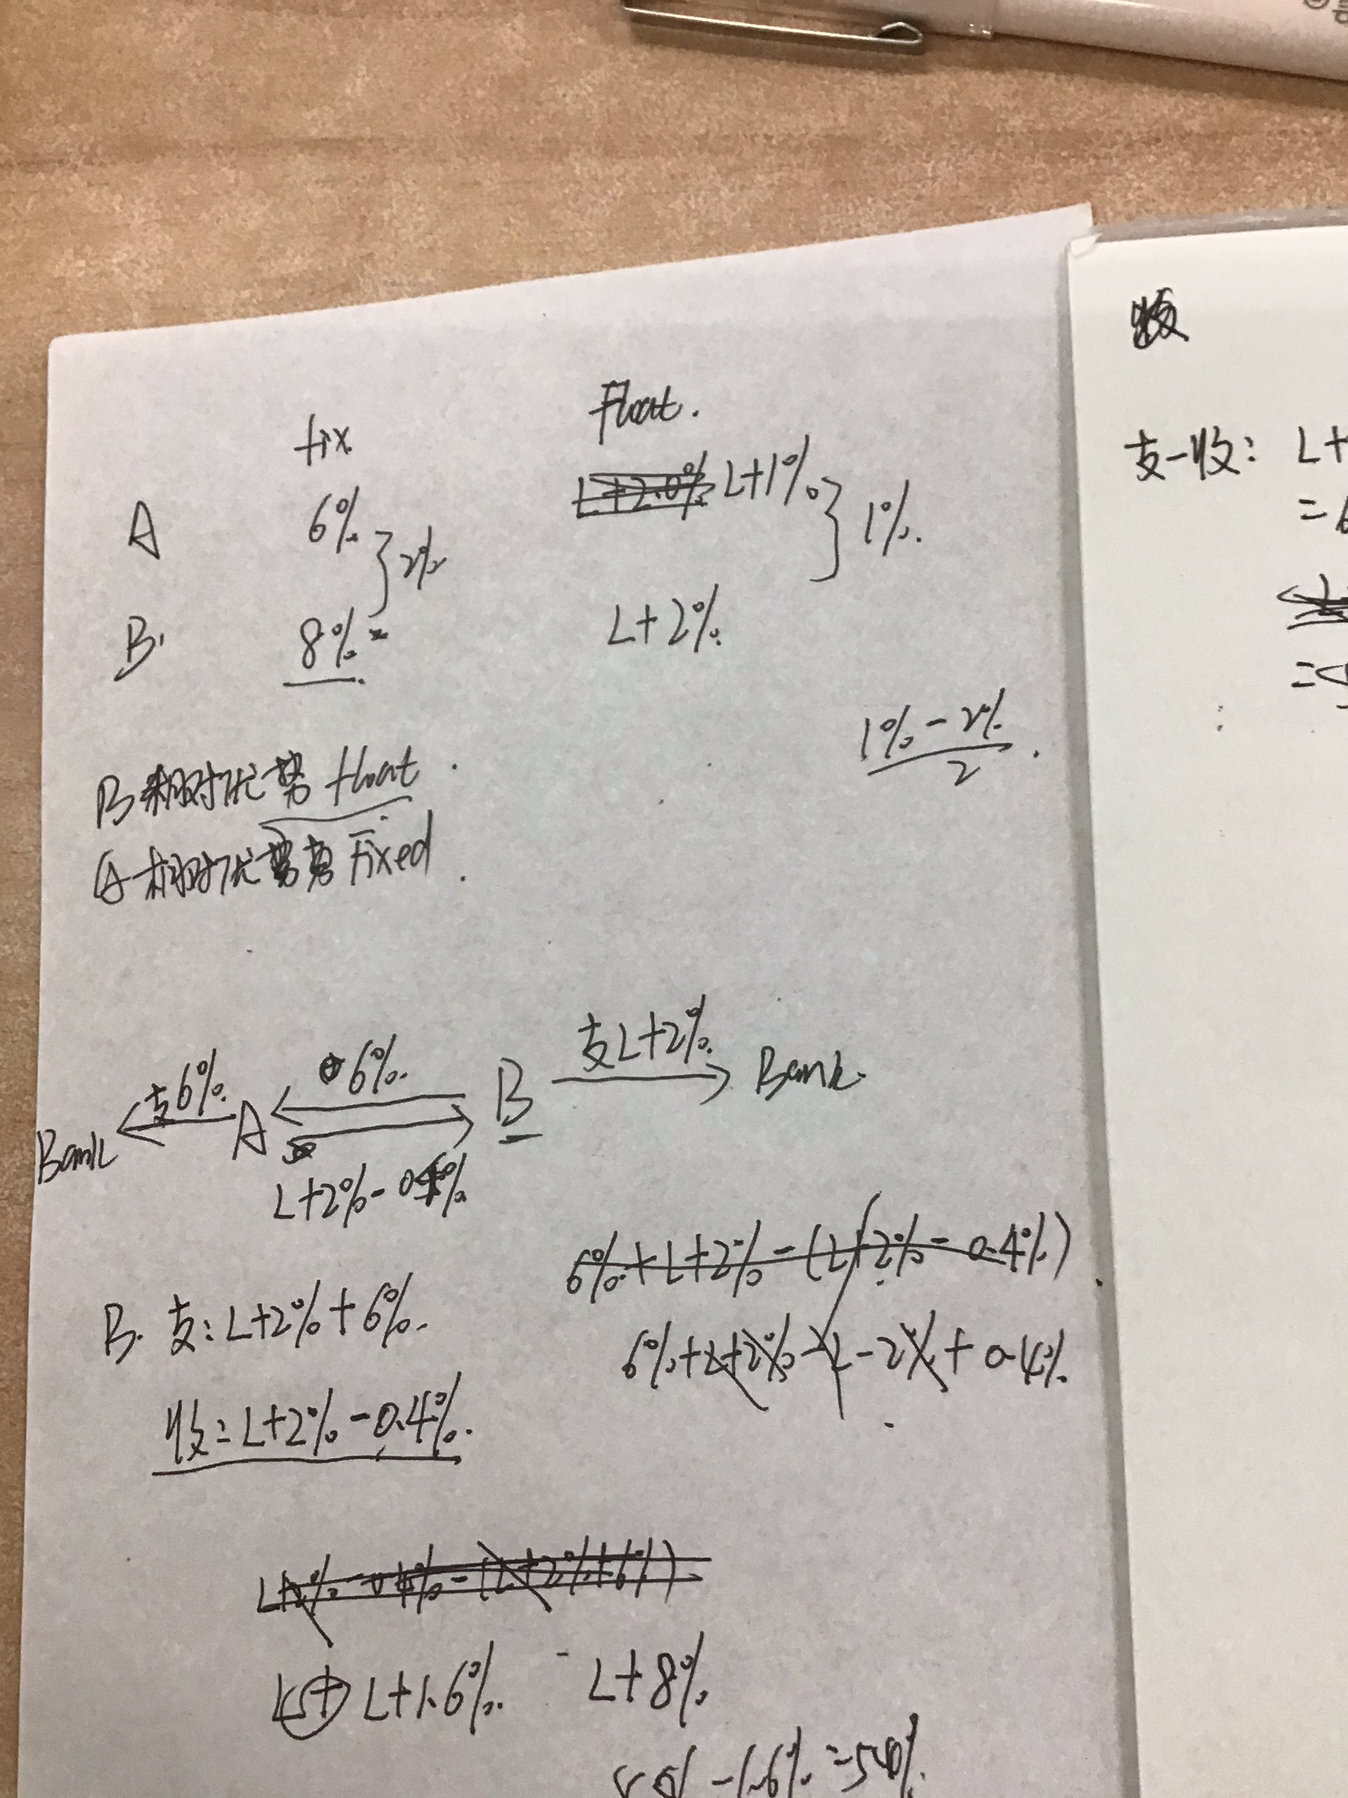 fix
Float.
A 6% L+2.0% L+1% 1%.
2%
B. 8% L+2%
1%-2%
2
B 相对优势 float.
A 相对优势 Fixed.
支L+2%
支6%. 6%. B Bank.
Bank A
L+2%-0.4%
6%+L+2%-(L+2%-0.4%)
B. 支:L+2%+6%.
6%+L+2%-L-2%+0.4%
收:L+2%-0.4%.
L+2%-0.4%-(L+2%+6%)
L+ L+1.6%. L+8%
-1.6%
支-收: L+
=
=